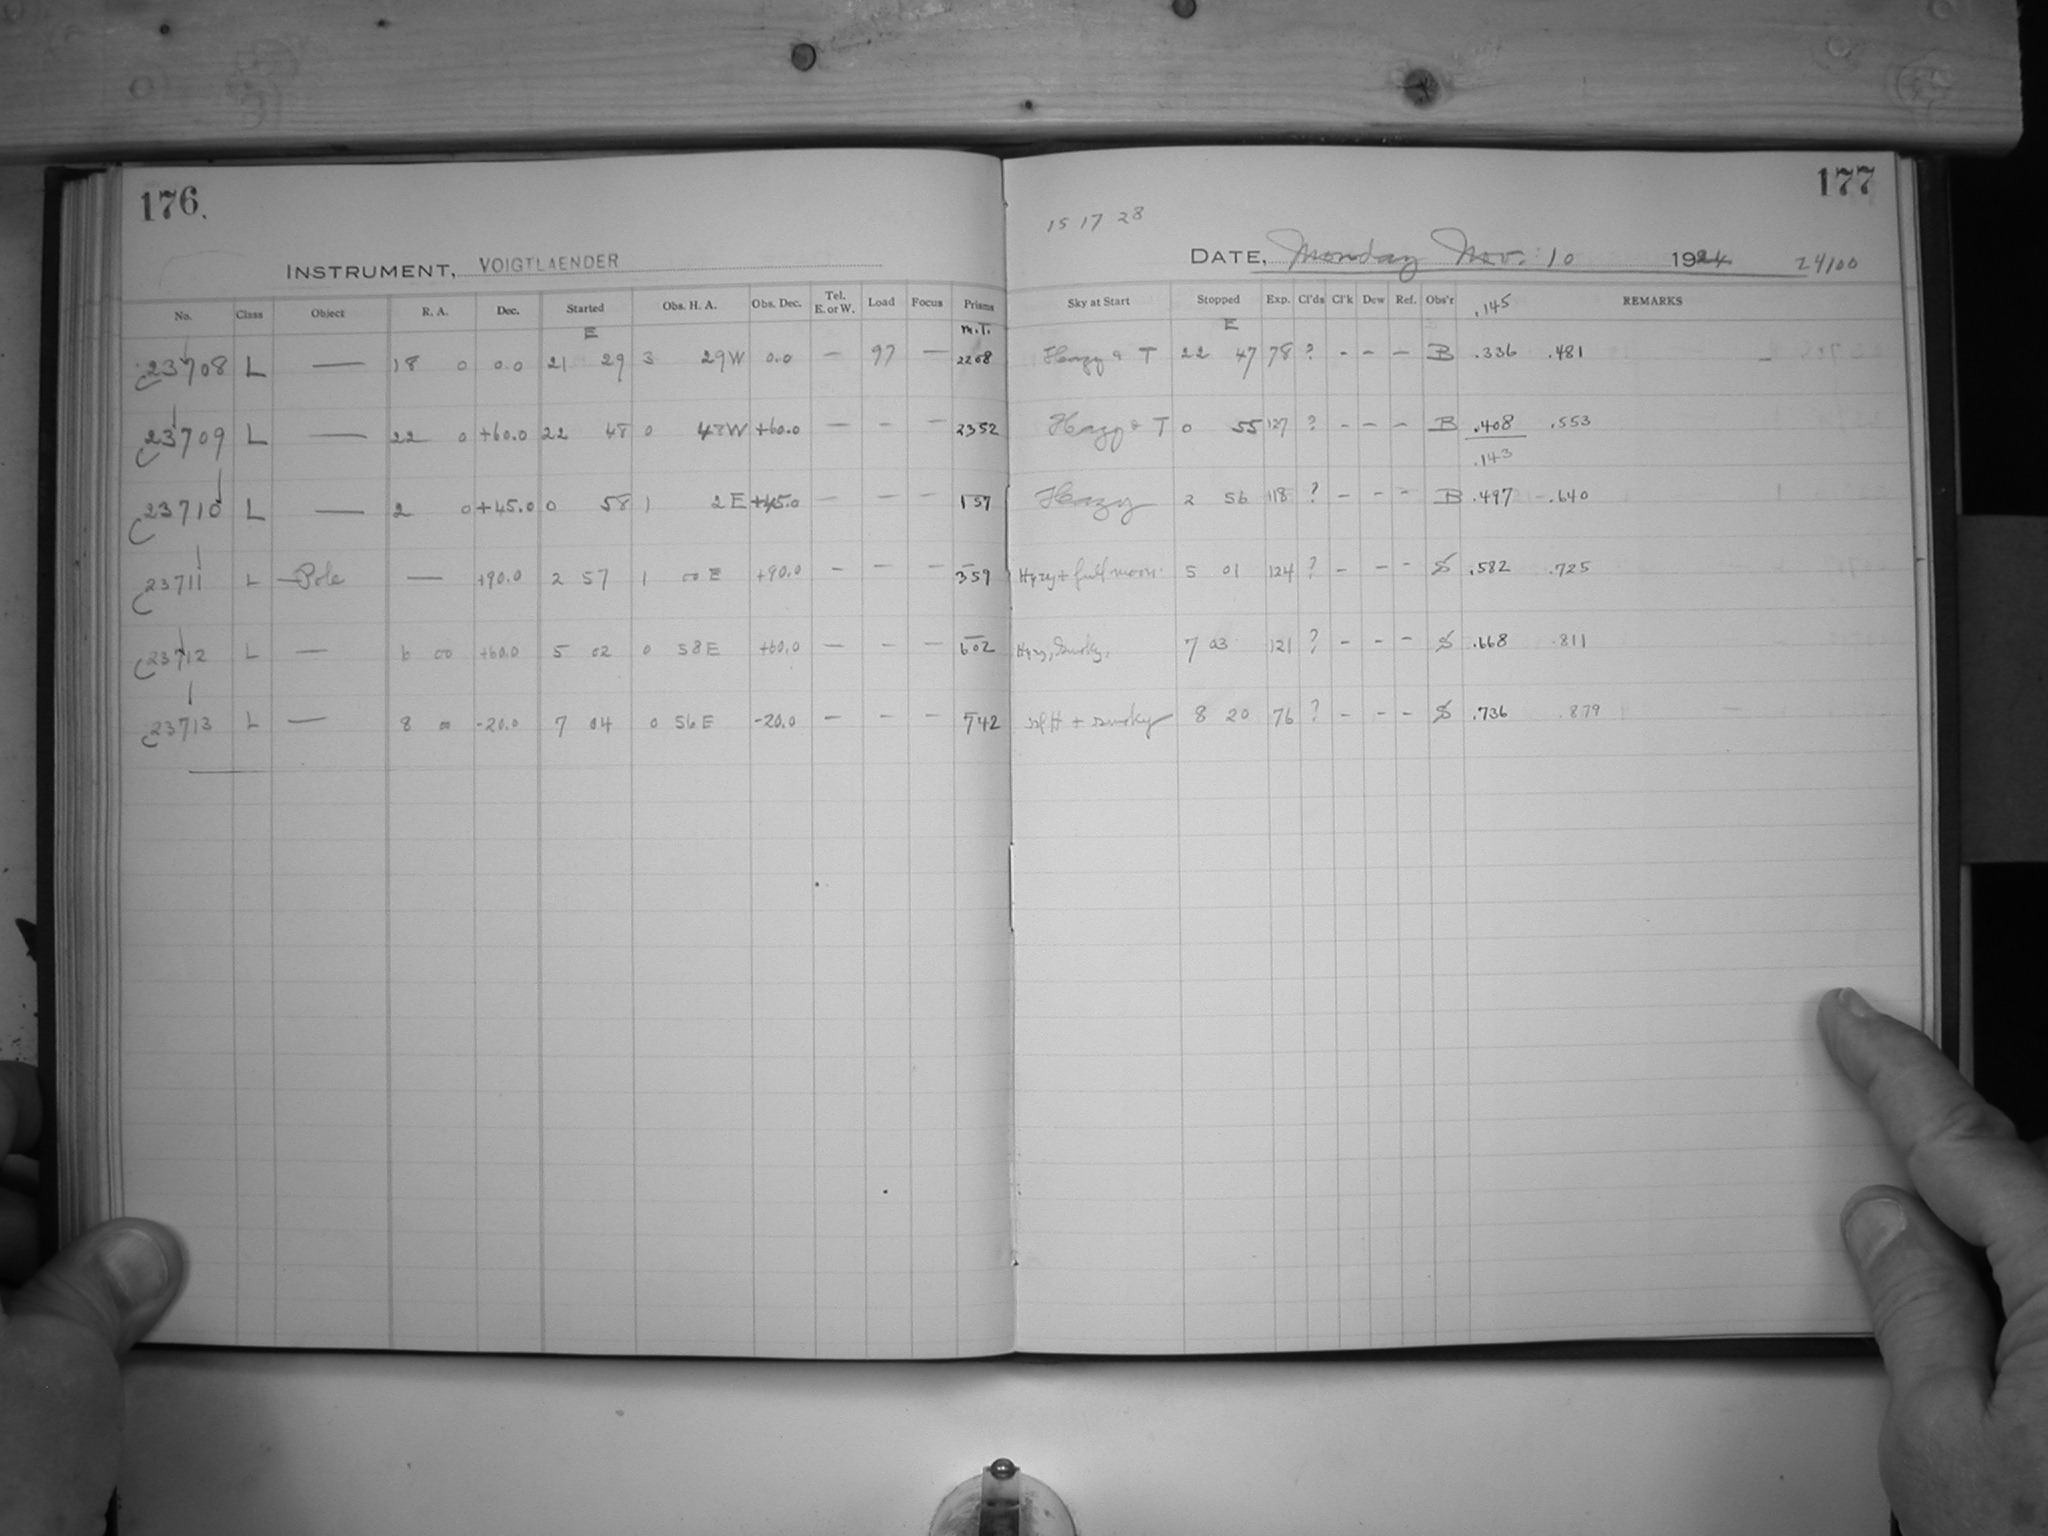 176.
INSTRUMENT, VOIGTLAENDER
No. Class Object R. A. Dec. Started Obs. H. A. Obs. Dec. Tel. E. or W. Load Focus Prisms
E M.T.
23708 L — 18 0 0.0 21 29 3 29W 0.0 — 97 — 2208
23709 L — 22 0 +60.0 22 48 0 48W +60.0 — — — 2352
23710 L — 2 0 +45.0 0 58 1 2E +45.0 — — — 157
23711 L Pole — +90.0 2 57 1 00E +90.0 — — — 359
23712 L — 6 00 +60.0 5 02 0 58E +60.0 — — — 602
23713 L — 8 00 -20.0 7 04 0 56E -20.0 — — — 742
177
15 17 28
DATE, Monday Nov. 10 1924 24100
Sky at Start Stopped Exp. Cl'ds Cl'k Dew Ref. Obs'r .145 REMARKS
E
Hazy & T 22 47 78 ? - - - B .336 .481
Hazy & T 0 55 127 ? - - - B .408 .553
.143
Hazy 2 56 118 ? - - - B .497 .640
Hazy + full moon. 5 01 124 ? - - - S .582 .725
Hazy, Smoky. 7 03 121 ? - - - S .668 .811
+ smoky 8 20 76 ? - - - S .736 .879